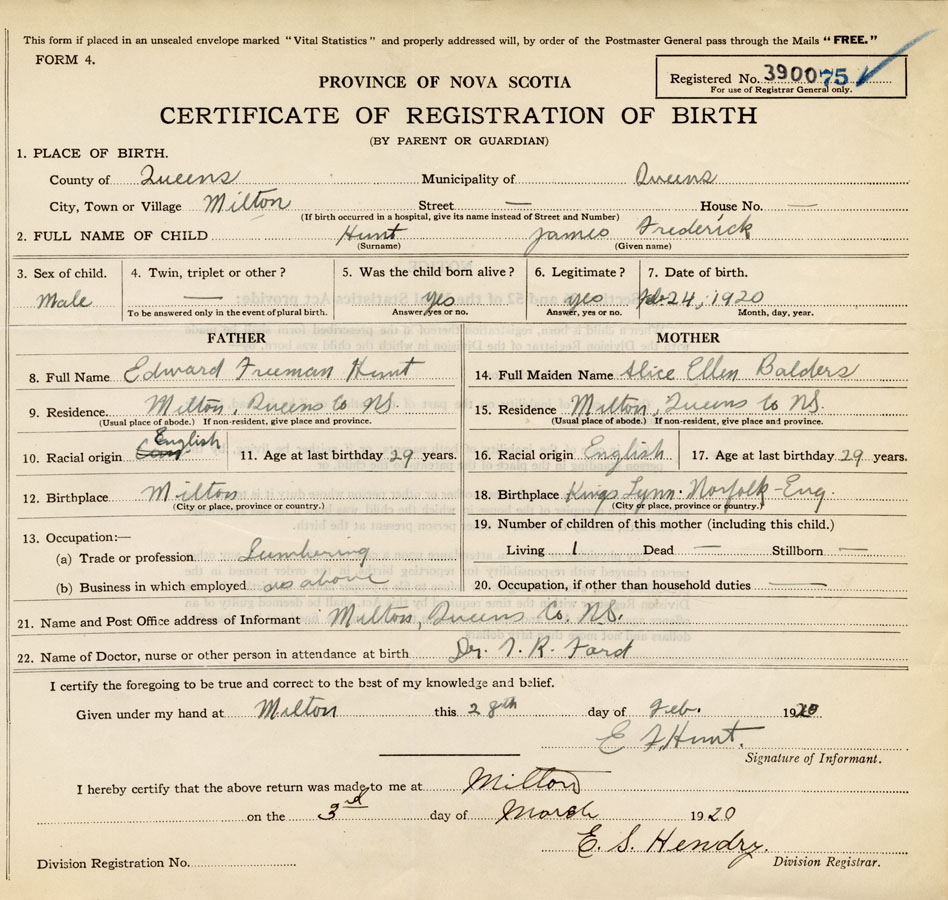 This form if placed in an unsealed envelope marked "Vital Statistics" and properly addressed will, by order of the Postmaster General pass through the Mails "FREE."
FORM 4.
Registered No. 390075
For use of Registrar General only.
PROVINCE OF NOVA SCOTIA
CERTIFICATE OF REGISTRATION OF BIRTH
(BY PARENT OR GUARDIAN)
1. PLACE OF BIRTH.
County of Queens Municipality of Queens
City, Town or Village Milton Street — House No. —
(If birth occurred in a hospital, give its name instead of Street and Number)
2. FULL NAME OF CHILD Hunt James Frederick
(Surname) (Given name)
3. Sex of child. 4. Twin, triplet or other? 5. Was the child born alive? 6. Legitimate? 7. Date of birth.
Male — yes yes Feb. 24, 1920
To be answered only in the event of plural birth. Answer, yes or no. Answer, yes or no. Month, day, year.
FATHER
8. Full Name Edward Freeman Hunt
9. Residence. Milton, Queens Co NS.
(Usual place of abode.) If non-resident, give place and province.
10. Racial origin English 11. Age at last birthday 29 years.
12. Birthplace Milton
(City or place, province or country.)
13. Occupation:—
(a) Trade or profession Lumbering
(b) Business in which employed as above
MOTHER
14. Full Maiden Name Alice Ellen Balders
15. Residence Milton, Queens Co NS.
(Usual place of abode.) If non-resident, give place and province.
16. Racial origin English 17. Age at last birthday 29 years.
18. Birthplace Kings Lynn. Norfolk - Eng.
(City or place, province or country.)
19. Number of children of this mother (including this child.)
Living 1 Dead — Stillborn —
20. Occupation, if other than household duties —
21. Name and Post Office address of Informant Milton, Queens Co. NS.
22. Name of Doctor, nurse or other person in attendance at birth Dr. T. R. Ford
I certify the foregoing to be true and correct to the best of my knowledge and belief.
Given under my hand at Milton this 28th day of Feb. 1920
E F Hunt.
Signature of Informant.
I hereby certify that the above return was made to me at Milton
on the 3rd day of March 1920
E. S. Hendry.
Division Registration No. Division Registrar.